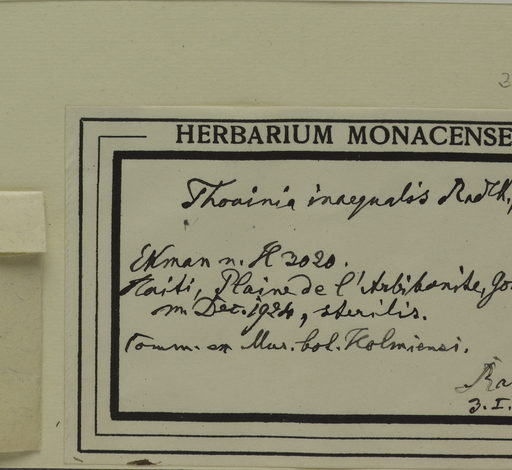 HERBARIUM MONACENSE
Thouinia inaequalis Radlk.,
Ekman n. H 2020.
Haiti, Plaine de l'Artibonite, Go
m. Dec. 1924, sterilis.
Comm. ex Mus. bot. Holmiensi.
3. I.